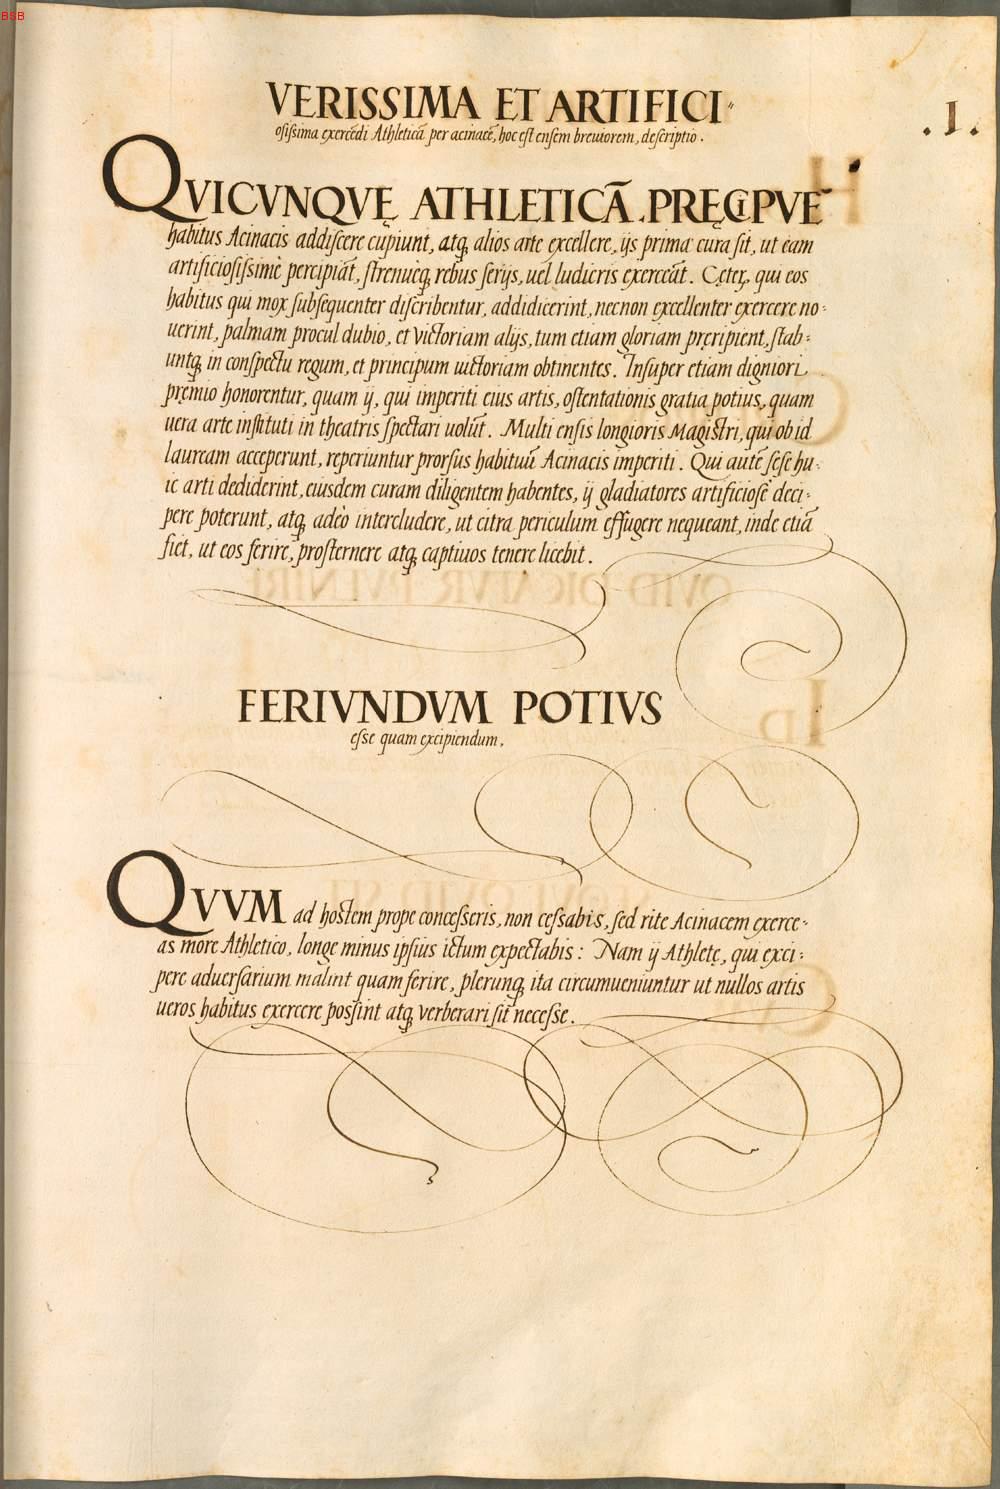 BSB
VERISSIMA ET ARTIFICI〃
.1.
osissima exercēdi Athleticā per acinacē, hoc est ensem breuiorem, descriptio.
QVICVNQVĘ ATHLETICĀ, PRĘCIPVE
habitus Acinacis addiscere cupiunt, atq; alios arte excellere, ijs prima cura sit, ut eam
artificiosissimè percipiāt, strenueq; rebus serijs, uel ludicris exerceāt. Cęterṵ qui eos
habitus qui mox subsequenter discribentur, addidicerint, necnon excellenter exercere no:
uerint, palmam procul dubio, et victoriam alijs, tum etiam gloriam pręripient, stab:
untq; in conspectu regum, et principum uictoriam obtinentes. Insuper etiam digniori
pręmio honorentur, quam ij, qui imperiti eius artis, ostentationis gratia potius, quam
uera arte instituti in theatris spectari uolūt. Multi ensis longioris Magistri, qui ob id
lauream acceperunt, reperiuntur prorsus habituū Acinacis imperiti. Qui autē sese hu:
ic arti dediderint, eiusdem curam diligentem habentes, ij gladiatores artificiosè deci:
pere poterunt, atq; adeò intercludere, ut citra periculum effugere nequeant, inde etiā
fiet, ut eos ferire, prosternere atq; captiuos tenere licebit.
FERIVNDVM POTIVS
esse quam excipiendum.
QVVM ad hostem prope concesseris, non cessabis, sed rite Acinacem exerce:
as more Athletico, longe minus ipsius ictum expectabis: Nam ij Athletę, qui exci:
pere aduersarium malint quam ferire, plerunq; ita circumueniuntur ut nullos artis
ueros habitus exercere possint atq; verberari sit necesse.